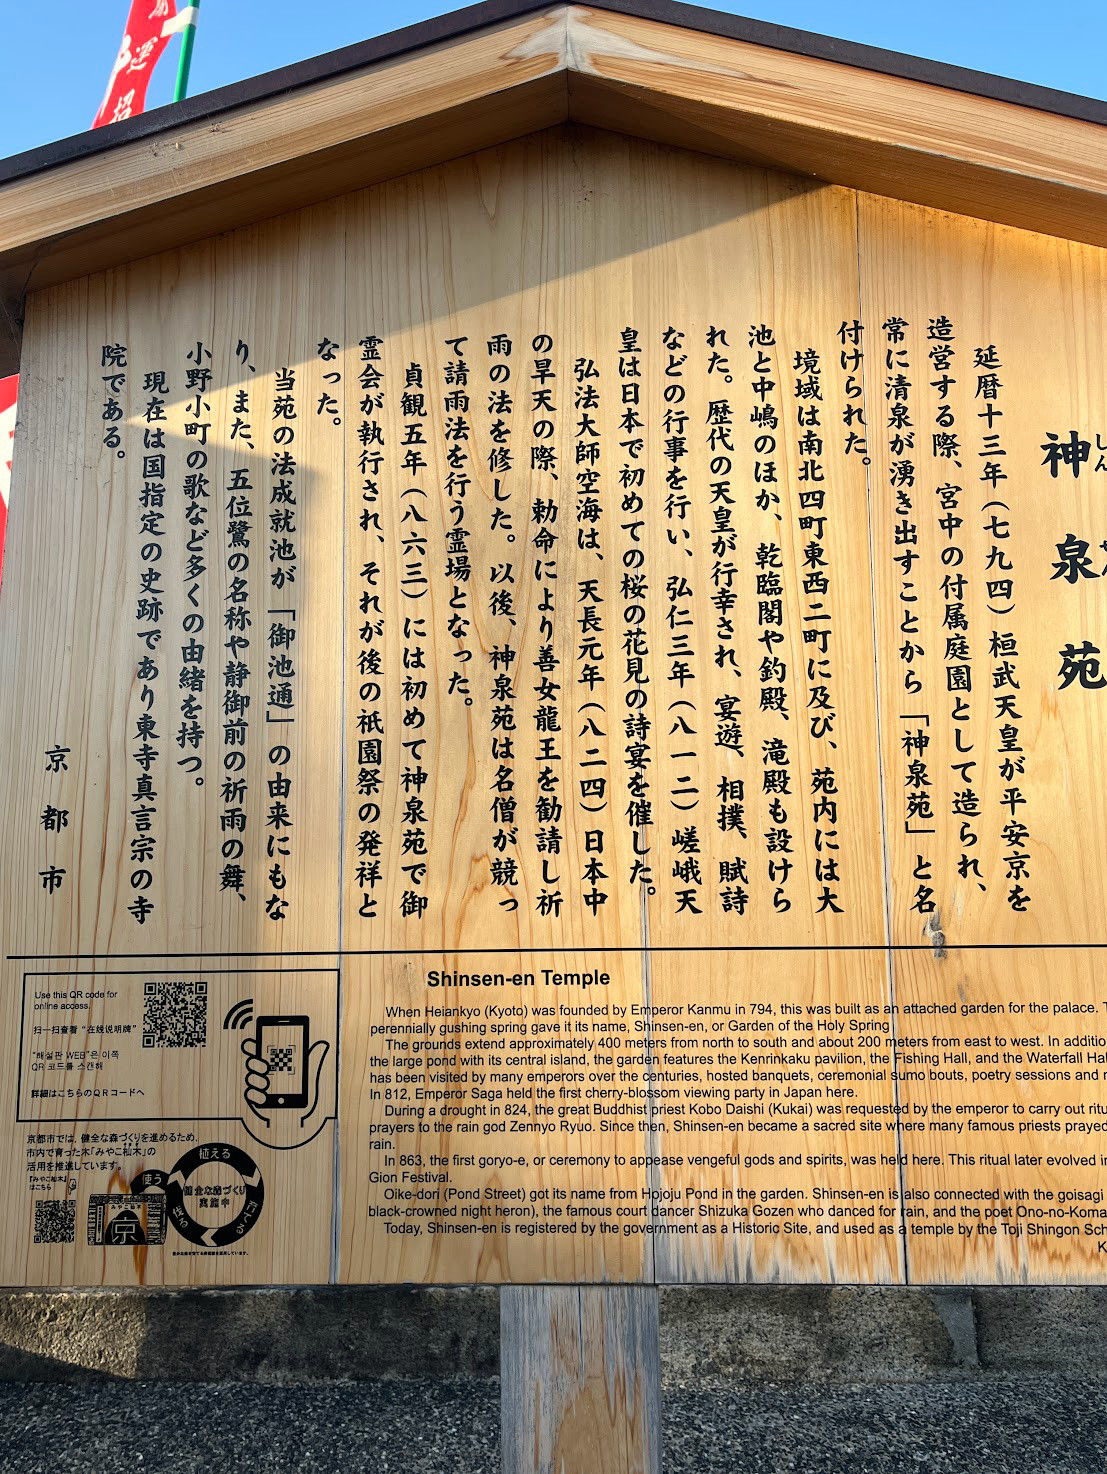 運
招
神泉苑
しん
延暦十三年（七九四）桓武天皇が平安京を
造営する際、宮中の付属庭園として造られ、
常に清泉が湧き出すことから「神泉苑」と名
付けられた。
境域は南北四町東西二町に及び、苑内には大
池と中嶋のほか、乾臨閣や釣殿、滝殿も設けら
れた。歴代の天皇が行幸され、宴遊、相撲、賦詩
などの行事を行い、弘仁三年（八一二）嵯峨天
皇は日本で初めての桜の花見の詩宴を催した。
弘法大師空海は、天長元年（八二四）日本中
の旱天の際、勅命により善女龍王を勧請し祈
雨の法を修した。以後、神泉苑は名僧が競っ
て請雨法を行う霊場となった。
貞観五年（八六三）には初めて神泉苑で御
霊会が執行され、それが後の祇園祭の発祥と
なった。
当苑の法成就池が「御池通」の由来にもな
り、また、五位鷺の名称や静御前の祈雨の舞、
小野小町の歌など多くの由緒を持つ。
現在は国指定の史跡であり東寺真言宗の寺
院である。
京都市
Shinsen-en Temple
When Heiankyo (Kyoto) was founded by Emperor Kanmu in 794, this was built as an attached garden for the palace.
perennially gushing spring gave it its name, Shinsen-en, or Garden of the Holy Spring
The grounds extend approximately 400 meters from north to south and about 200 meters from east to west. In additio
the large pond with its central island, the garden features the Kenrinkaku pavilion, the Fishing Hall, and the Waterfall Hal
has been visited by many emperors over the centuries, hosted banquets, ceremonial sumo bouts, poetry sessions and
In 812, Emperor Saga held the first cherry-blossom viewing party in Japan here.
During a drought in 824, the great Buddhist priest Kobo Daishi (Kukai) was requested by the emperor to carry out ritu
prayers to the rain god Zennyo Ryuo. Since then, Shinsen-en became a sacred site where many famous priests prayed
rain.
In 863, the first goryo-e, or ceremony to appease vengeful gods and spirits, was held here. This ritual later evolved in
Gion Festival.
Oike-dori (Pond Street) got its name from Hojoju Pond in the garden. Shinsen-en is also connected with the goisagi
black-crowned night heron), the famous court dancer Shizuka Gozen who danced for rain, and the poet Ono-no-Koma
Today, Shinsen-en is registered by the government as a Historic Site, and used as a temple by the Toji Shingon Sch
K
Use this QR code for
online access.
扫一扫查看“在线说明牌”
"해설판 WEB"은 이쪽
QR 코드를 스캔해
詳細はこちらのQRコードへ
京都市では、健全な森づくりを進めるため、
市内で育った木「みやこ杣木」の
活用を推進しています。
『みやこ杣木』
はこちら
みやこ杣木
京
使う
植える
育てる
伐る
健全な森づくり
実施中